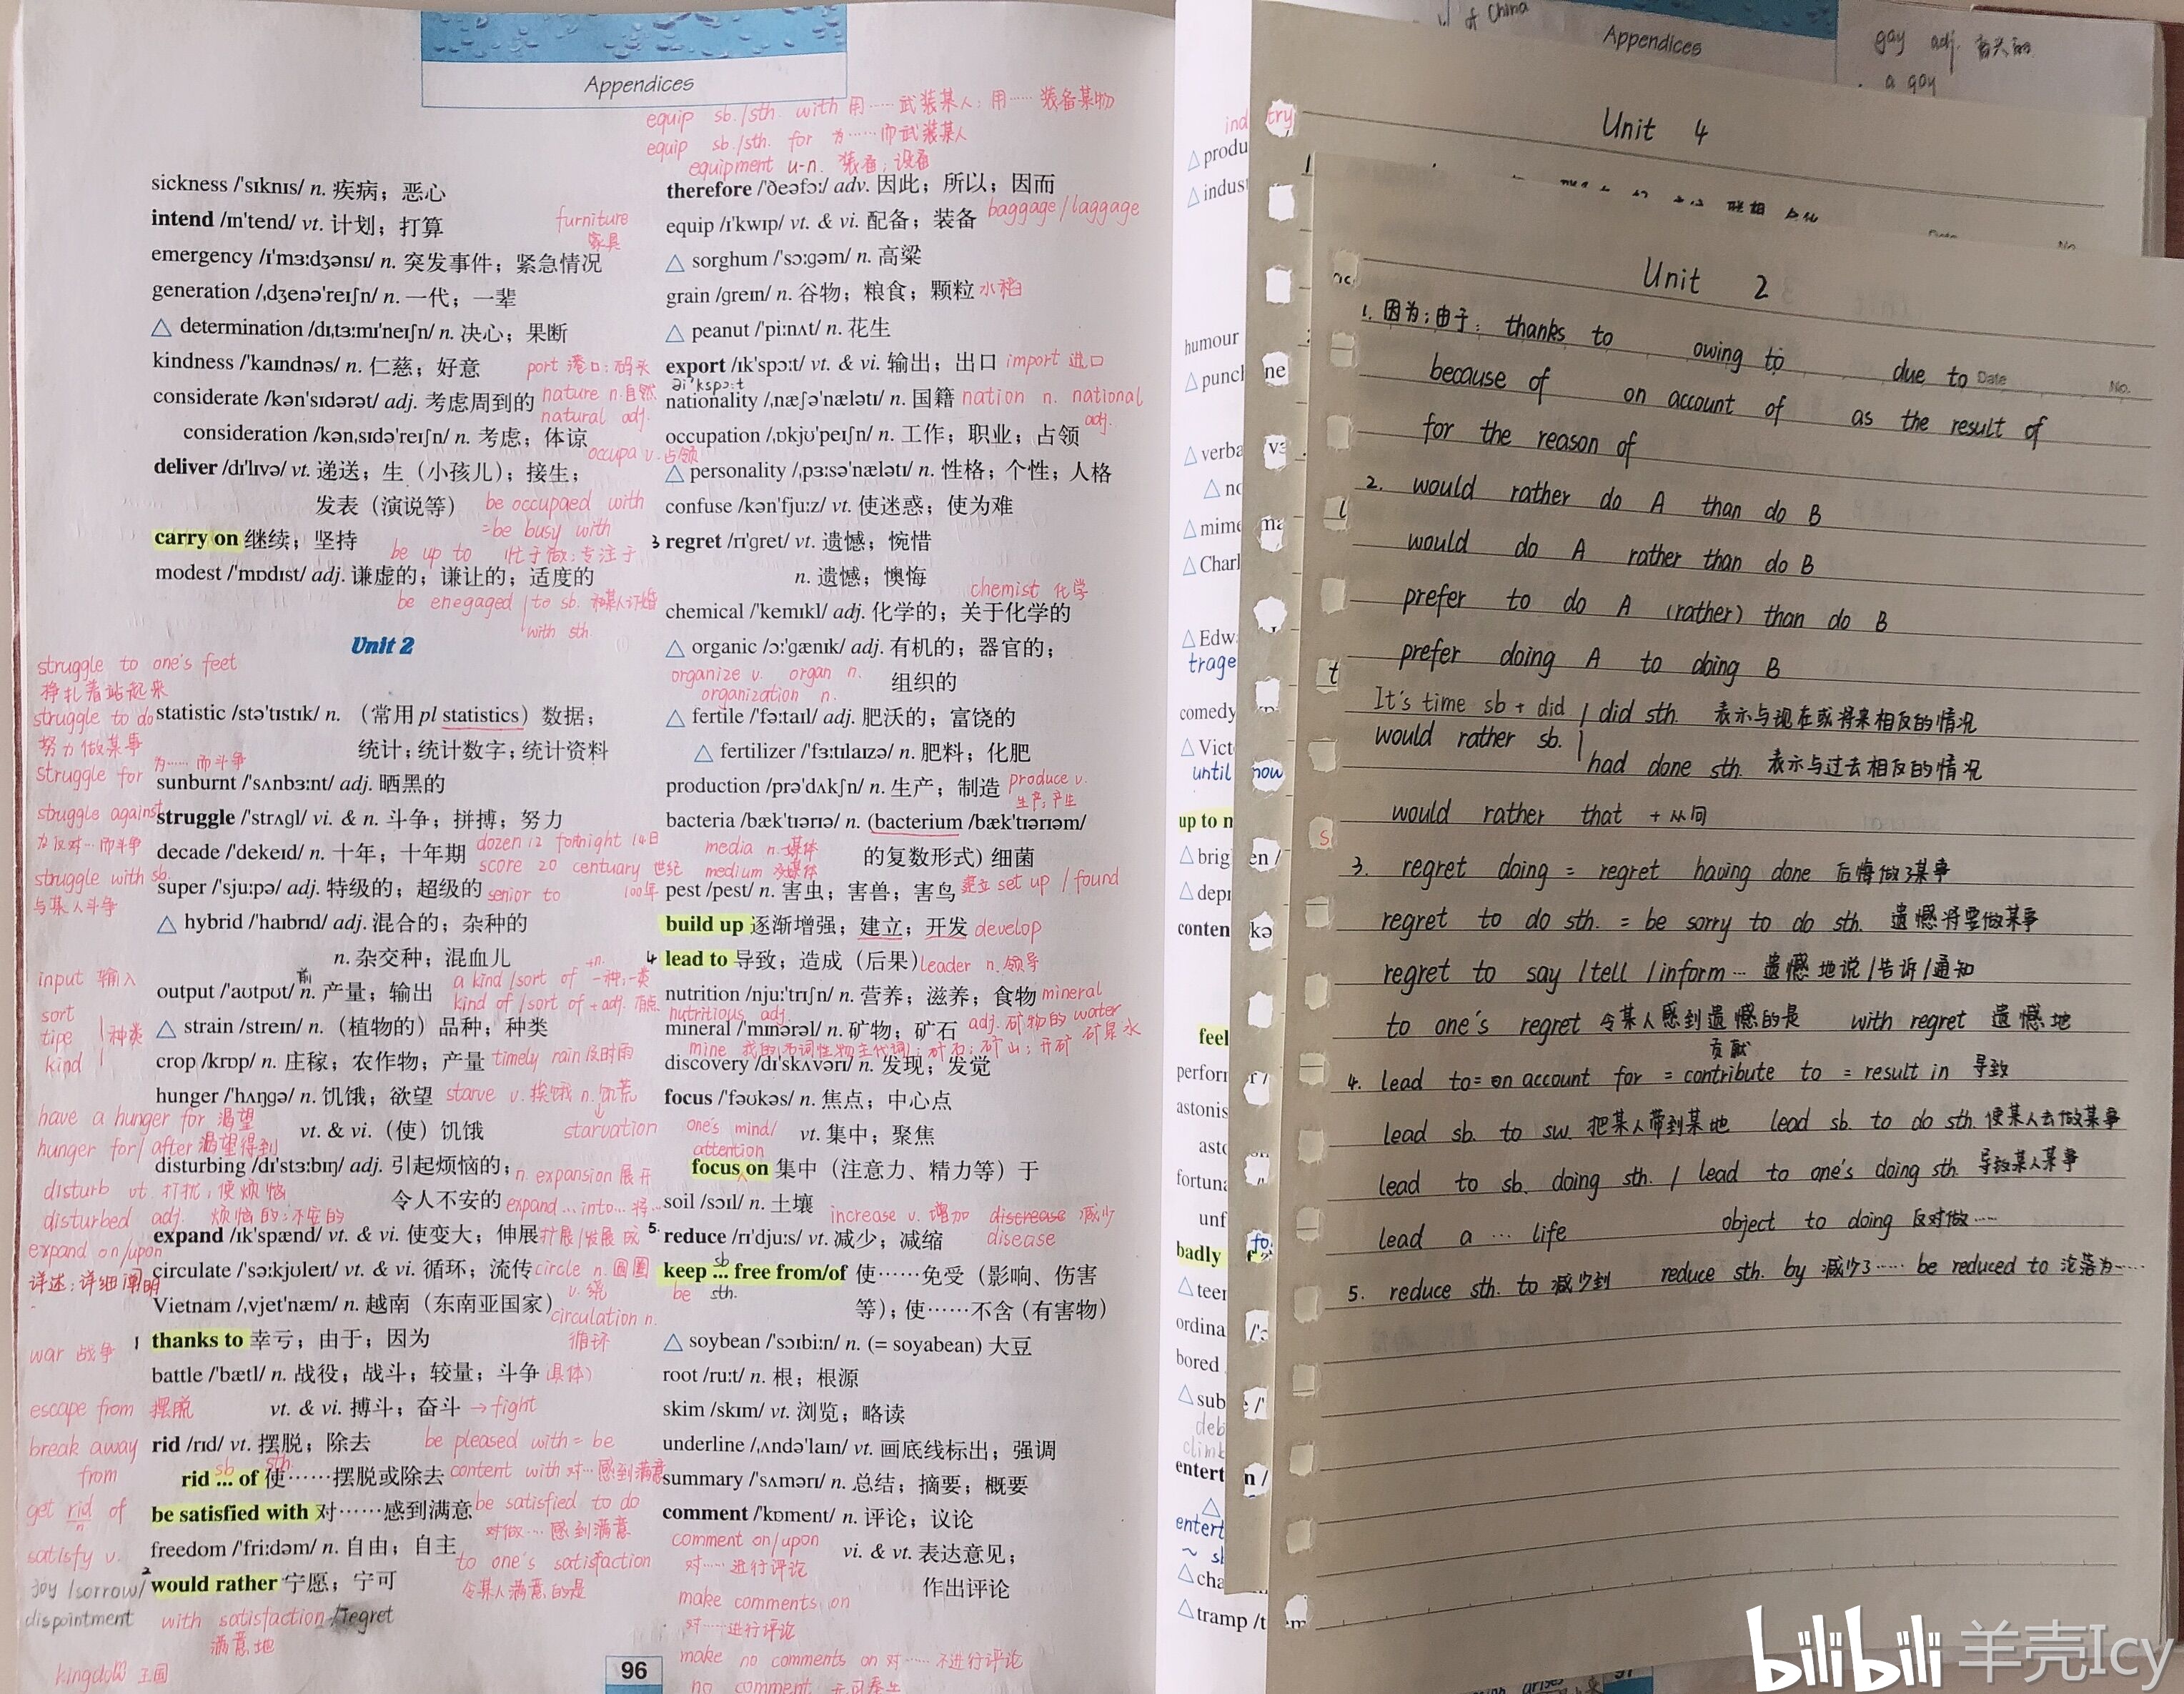 Appendices
equip sb./sth. with 用……武装某人；用……装备某物
equip sb./sth. for 为……而武装某人
equipment u-n. 装备；设备
sickness /'sɪknɪs/ n. 疾病；恶心
intend /ɪn'tend/ vt. 计划；打算
furniture
家具
emergency /ɪ'mɜːdʒənsɪ/ n. 突发事件；紧急情况
generation /ˌdʒenə'reɪʃn/ n. 一代；一辈
△ determination /dɪˌtɜːmɪ'neɪʃn/ n. 决心；果断
kindness /'kaɪndnəs/ n. 仁慈；好意
port 港口；码头
considerate /kən'sɪdərət/ adj. 考虑周到的
nature n.自然
natural adj.
consideration /kənˌsɪdə'reɪʃn/ n. 考虑；体谅
occupa v. 占领
deliver /dɪ'lɪvə/ vt. 递送；生（小孩儿）；接生；
发表（演说等）
be occupaed with
=be busy with
carry on 继续；坚持
be up to 忙于做；专注于
modest /'mɒdɪst/ adj. 谦虚的；谦让的；适度的
be enegaged to sb. 和某人订婚
with sth.
Unit 2
struggle to one's feet
挣扎着站起来
struggle to do
努力做某事
struggle for 为……而斗争
struggle against
为反对…而斗争
struggle with sb.
与某人斗争
statistic /stə'tɪstɪk/ n. （常用 pl statistics）数据；
统计；统计数字；统计资料
sunburnt /'sʌnbɜːnt/ adj. 晒黑的
struggle /'strʌgl/ vi. & n. 斗争；拼搏；努力
decade /'dekeɪd/ n. 十年；十年期
dozen 12 fortnight 14日
score 20 centuary 世纪
100年
super /'sjuːpə/ adj. 特级的；超级的 senior to
△ hybrid /'haɪbrɪd/ adj. 混合的；杂种的
n. 杂交种；混血儿
input 输入
output /'aʊtpʊt/ n. 产量；输出
a kind/sort of +n. 一种；一类
kind of/sort of + adj. 有点
sort
tipe
kind
种类
△ strain /streɪn/ n.（植物的）品种；种类
crop /krɒp/ n. 庄稼；农作物；产量 timely rain 及时雨
hunger /'hʌŋgə/ n. 饥饿；欲望 starve v. 挨饿 n. 饥荒
starvation
have a hunger for 渴望
hunger for/after 渴望得到
vt. & vi.（使）饥饿
disturbing /dɪ'stɜːbɪŋ/ adj. 引起烦恼的；
令人不安的
n. expansion 展开
expand…into…将…
disturb vt. 打扰；使烦恼
disturbed adj. 烦恼的；不安的
expand /ɪk'spænd/ vt. & vi. 使变大；伸展 扩展/发展成
expand on/upon
详述；详细阐明
circulate /'sɜːkjʊleɪt/ vt. & vi. 循环；流传 circle n. 圆圈
v. 绕
Vietnam /ˌvjet'næm/ n. 越南（东南亚国家）
circulation n.
循环
1 thanks to 幸亏；由于；因为
war 战争
battle /'bætl/ n. 战役；战斗；较量；斗争（具体）
vt. & vi. 搏斗；奋斗 → fight
escape from 摆脱
break away
from
get rid of
n
rid /rɪd/ vt. 摆脱；除去
be pleased with = be
content with 对…感到满意
rid ... of 使……摆脱或除去
sb sth.
be satisfied with 对……感到满意
be satisfied to do
对做…感到满意
satisfy v.
freedom /'friːdəm/ n. 自由；自主
to one's satisfaction
令某人满意的是
2 would rather 宁愿；宁可
joy/sorrow/
dispointment with satisfaction/regret
满意地
kingdom 王国
therefore /'ðeəfɔː/ adv. 因此；所以；因而
equip /ɪ'kwɪp/ vt. & vi. 配备；装备 baggage/laggage
△ sorghum /'sɔːgəm/ n. 高粱
grain /greɪn/ n. 谷物；粮食；颗粒 水稻
△ peanut /'piːnʌt/ n. 花生
export /ɪk'spɔːt/ vt. & vi. 输出；出口 import 进口
nationality /ˌnæʃə'nælətɪ/ n. 国籍 nation n. national
adj.
occupation /ˌɒkjʊ'peɪʃn/ n. 工作；职业；占领
△ personality /ˌpɜːsə'nælətɪ/ n. 性格；个性；人格
confuse /kən'fjuːz/ vt. 使迷惑；使为难
3 regret /rɪ'gret/ vt. 遗憾；惋惜
n. 遗憾；懊悔
chemist 化学
chemical /'kemɪkl/ adj. 化学的；关于化学的
△ organic /ɔː'gænɪk/ adj. 有机的；器官的；
组织的
organize v. organ n.
organization n.
△ fertile /'fɜːtaɪl/ adj. 肥沃的；富饶的
△ fertilizer /'fɜːtɪlaɪzə/ n. 肥料；化肥
production /prə'dʌkʃn/ n. 生产；制造 produce v.
生产；产生
bacteria /bæk'tɪərɪə/ n. (bacterium /bæk'tɪərɪəm/
的复数形式) 细菌
media n. 媒体
medium
pest /pest/ n. 害虫；害兽；害鸟 建立 set up / found
build up 逐渐增强；建立；开发 develop
4 lead to 导致；造成（后果） leader n. 领导
nutrition /njuː'trɪʃn/ n. 营养；滋养；食物 mineral
nutritious adj.
mineral /'mɪnərəl/ n. 矿物；矿石 adj. 矿物的 water
矿泉水
mine 我的（名词性物主代词）；矿石；矿山；开矿
discovery /dɪ'skʌvərɪ/ n. 发现；发觉
focus /'fəʊkəs/ n. 焦点；中心点
vt. 集中；聚焦
one's mind/
attention
focus on 集中（注意力、精力等）于
soil /sɔɪl/ n. 土壤
increase v. 增加 discrease 减少
disease
5. reduce /rɪ'djuːs/ vt. 减少；减缩
keep ... free from/of 使……免受（影响、伤害
等）；使……不含（有害物）
sb
be sth.
△ soybean /'sɔɪbiːn/ n. (= soyabean) 大豆
root /ruːt/ n. 根；根源
skim /skɪm/ vt. 浏览；略读
underline /ˌʌndə'laɪn/ vt. 画底线标出；强调
summary /'sʌmərɪ/ n. 总结；摘要；概要
comment /'kɒment/ n. 评论；议论
vi. & vt. 表达意见；
作出评论
comment on/upon
对……进行评论
make comments on
对……进行评论
make no comments on 对……不进行评论
no comment 无可奉告
96
of China
Appendices
gay adj.
a gay
Unit 4
ind try
△produ
△indust
humour
△punch
△verba
△mime
△Charl
△Edw
trage
comedy
△Vict
until now
up to n
△brig
△depr
conten
feel
perfor
astonis
fortuna
unf
badly
△teer
ordina
bored
△sub
entert
△cha
△tramp
Unit 2
Date No.
1. 因为；由于： thanks to owing to due to
because of on account of as the result of
for the reason of
2. would rather do A than do B
would do A rather than do B
prefer to do A (rather) than do B
prefer doing A to doing B
It's time sb + did
would rather sb. did sth. 表示与现在或将来相反的情况
had done sth. 表示与过去相反的情况
would rather that + 从句
3. regret doing = regret having done 后悔做了某事
regret to do sth. = be sorry to do sth. 遗憾将要做某事
regret to say / tell / inform … 遗憾地说/告诉/通知
to one's regret 令某人感到遗憾的是 with regret 遗憾地
贡献
4. lead to = on account for = contribute to = result in 导致
lead sb. to sw. 把某人带到某地 lead sb. to do sth. 使某人去做某事
lead to sb. doing sth. / lead to one's doing sth. 导致某人某事
lead a … life object to doing 反对做……
5. reduce sth. to 减少到 reduce sth. by 减少了…… be reduced to 沦落为……
bilibili 羊壳Icy